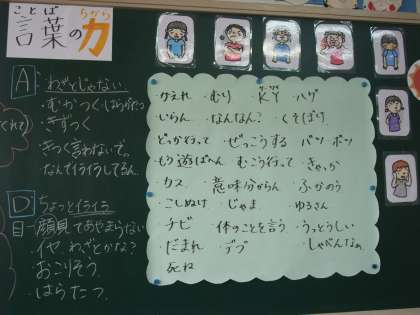 ことば ちから
言葉の力
A: わざとじゃない。
・むかつく はらがたつ
・きずつく
・きつく言わないで。
なんでイライラしてるん。
くれて
D ちょっとイライラ
目→顔見てあやまらない
イヤ わざとかな?
おこりそう
はらたつ。
・かえれ ・むり ・KY ・ハゲ
・いらん ・なんなん? ・くそばり
どっか行って ・ぜっこうする ・パン ポン
・もう遊ばへん ・むこう行って ・きゃっか
・カス ・意味分からん ・ふかのう
・こしぬけ ・じゃま ・ゆるさん
・チビ ・体のことを言う ・うっとうしい
・だまれ ・デブ ・しゃべんなぁ
・死ね